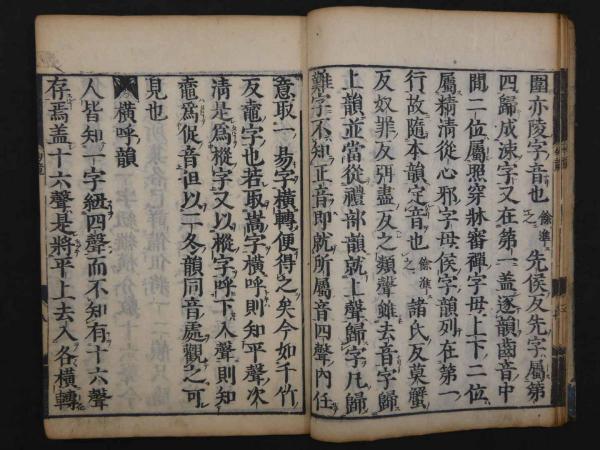 圍亦陵字音也餘準之先侯反先字屬第
四歸成涑字又在第一盖逐韻齒音中
間二位屬照穿牀審禪字母上下二位
屬精清從心邪字母侯字韻列在第一
行故隨本韻定音也餘準之諸氏反莫蟹
反奴罪反弭盡反之類聲雖去音字歸
上韻並當從禮部韻就上聲歸字凡歸
難字不知正音即就所屬音四聲內任
意取一易字橫轉便得之矣今如千竹
反鼀字也若取嵩字橫呼則知平聲次
清是爲樅字又以樅字呼下入聲則知
鼀爲促音但以二冬韻同音處觀之可
見也
橫呼韻
人皆知一字紐四聲而不知有十六聲
存焉盖十六聲是將平上去入各橫轉